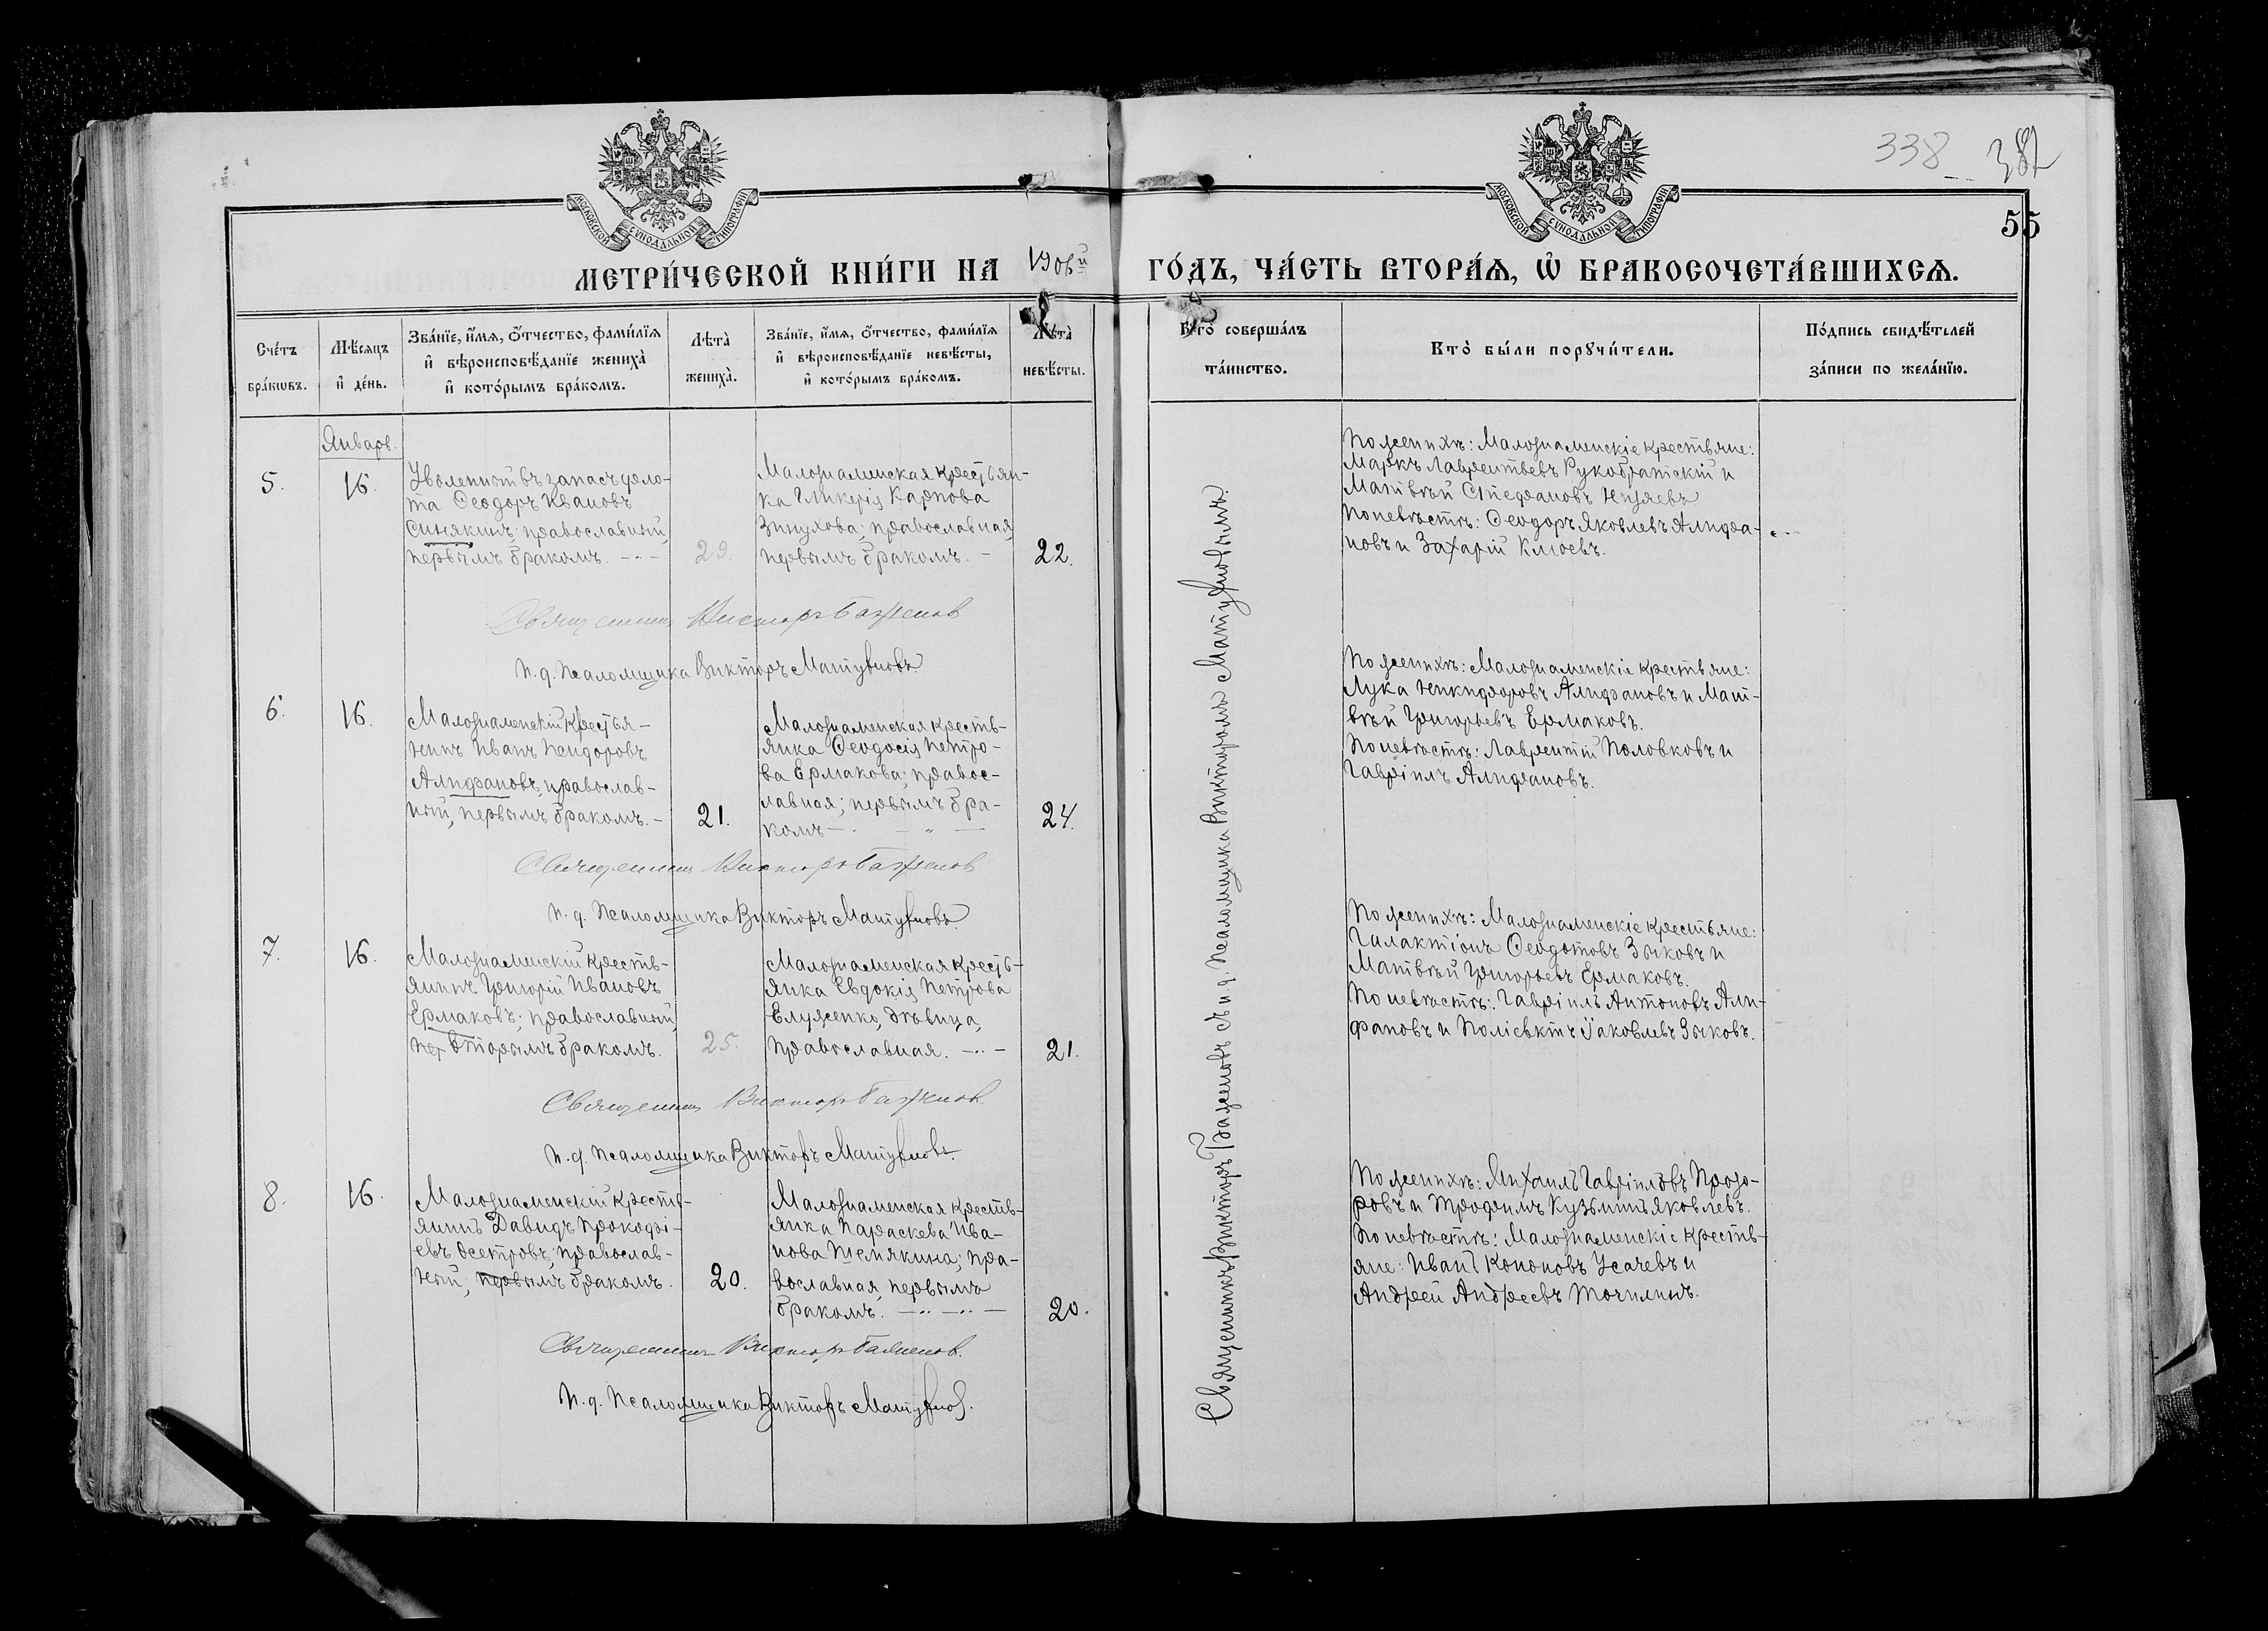 338
382
55
МОСКОВСКОЙ СѴНОДАЛЬНОЙ ТИПОГРАФІИ
МОСКОВСКОЙ СѴНОДАЛЬНОЙ ТИПОГРАФІИ
МЕТРИ́ЧЕСКОЙ КНИ́ГИ НА 1906й ГО́ДЪ, ЧА́СТЬ ВТОРА́Ѧ, Ѽ БРАКОСОЧЕТА́ВШИХСѦ.
Сче́тъ
бра́кѡвъ.
Мѣ́сяцъ
и҆ де́нь.
Зва́нїе, и҆́мѧ, о҆́тчество, фами́лїѧ
и҆ вѣроисповѣ́данїе жениха̀
и҆ кото́рымъ бра́комъ.
Лѣта̀
жениха̀.
Зва́нїе, и҆́мѧ, о҆́тчество, фами́лїѧ
и҆ вѣроисповѣ́данїе невѣ́сты,
и҆ кото́рымъ бра́комъ.
Лѣта̀
невѣ́сты.
Кто̀ соверша́лъ
та́инство.
Кто̀ бы́ли порꙋчи́тели.
По́дпись свидѣ́телей
за́писи по жела́нїю.
Январь.
5.
16.
Уволенный въ запасъ фло-
та Ѳеодоръ Ивановъ
Синякинъ; православный,
первымъ бракомъ.
29.
Малознаменская крестьян-
ка Гликерія Карпова
Зинухова; православная,
первымъ бракомъ.
22.
По женихѣ: Малознаменскіе крестьяне:
Маркъ Лаврентьевъ Рукобратскій и
Матвѣй Стефановъ
По невѣстѣ: Ѳеодоръ Яковлевъ Алифа-
новъ и Захарій Клюевъ.
Священникъ Викторъ Баженов
И. д. Псаломщика Викторъ
6.
16.
Малознаменскій крестья-
нинъ Иванъ Исидоровъ
Алифановъ, православ-
ный, первымъ бракомъ.
21.
Малознаменская кресть-
янка Ѳеодосія Петро-
ва Ермакова; правос-
лавная; первымъ бра-
комъ
24.
По женихѣ: Малознаменскіе крестьяне:
Лука Никифоровъ Алифановъ и Мат-
вѣй Григорьевъ Ермаковъ.
По невѣстѣ: Лаврентій Половковъ и
Гавріилъ Алифановъ.
Священникъ Викторъ Баженов
И. д. Псаломщика Викторъ
7.
16.
Малознаменскій кресть-
янинъ Григорій Ивановъ
Ермаковъ; православный,
пер вторымъ бракомъ.
25.
Малознаменская кресть-
янка Евдокія Петрова
Елуженко, дѣвица,
православная.
21.
По женихѣ: Малознаменскіе крестьяне:
Галактіонъ Ѳеодотовъ Зыковъ и
Матвѣй Григорьевъ Ермаковъ.
По невѣстѣ: Гавріилъ Антоновъ Али-
фановъ и Поліевктъ Іаковлевъ Зыковъ.
Священникъ Викторъ Баженов.
И. д. Псаломщика Викторъ
8.
16.
Малознаменскій кресть-
янинъ Давидъ Прокофі-
евъ Осетровъ; православ-
ный; первымъ бракомъ.
20.
Малознаменская кресть-
янка Параскева Ива-
нова Шемякина; пра-
вославная, первымъ
бракомъ.
20.
По женихѣ: Михаилъ Гавріиловъ Прозо-
ровъ и Трофимъ Кузьминъ Яковлевъ.
По невѣстѣ: Малознаменскіе кресть-
яне: Иванъ Кононовъ Усачевъ и
Андрей Андреевъ Точилинъ.
Священникъ Викторъ Баженов.
И. д. Псаломщика Викторъ
Священникъ Викторъ Баженовъ съ и. д. псаломщика Викторомъ